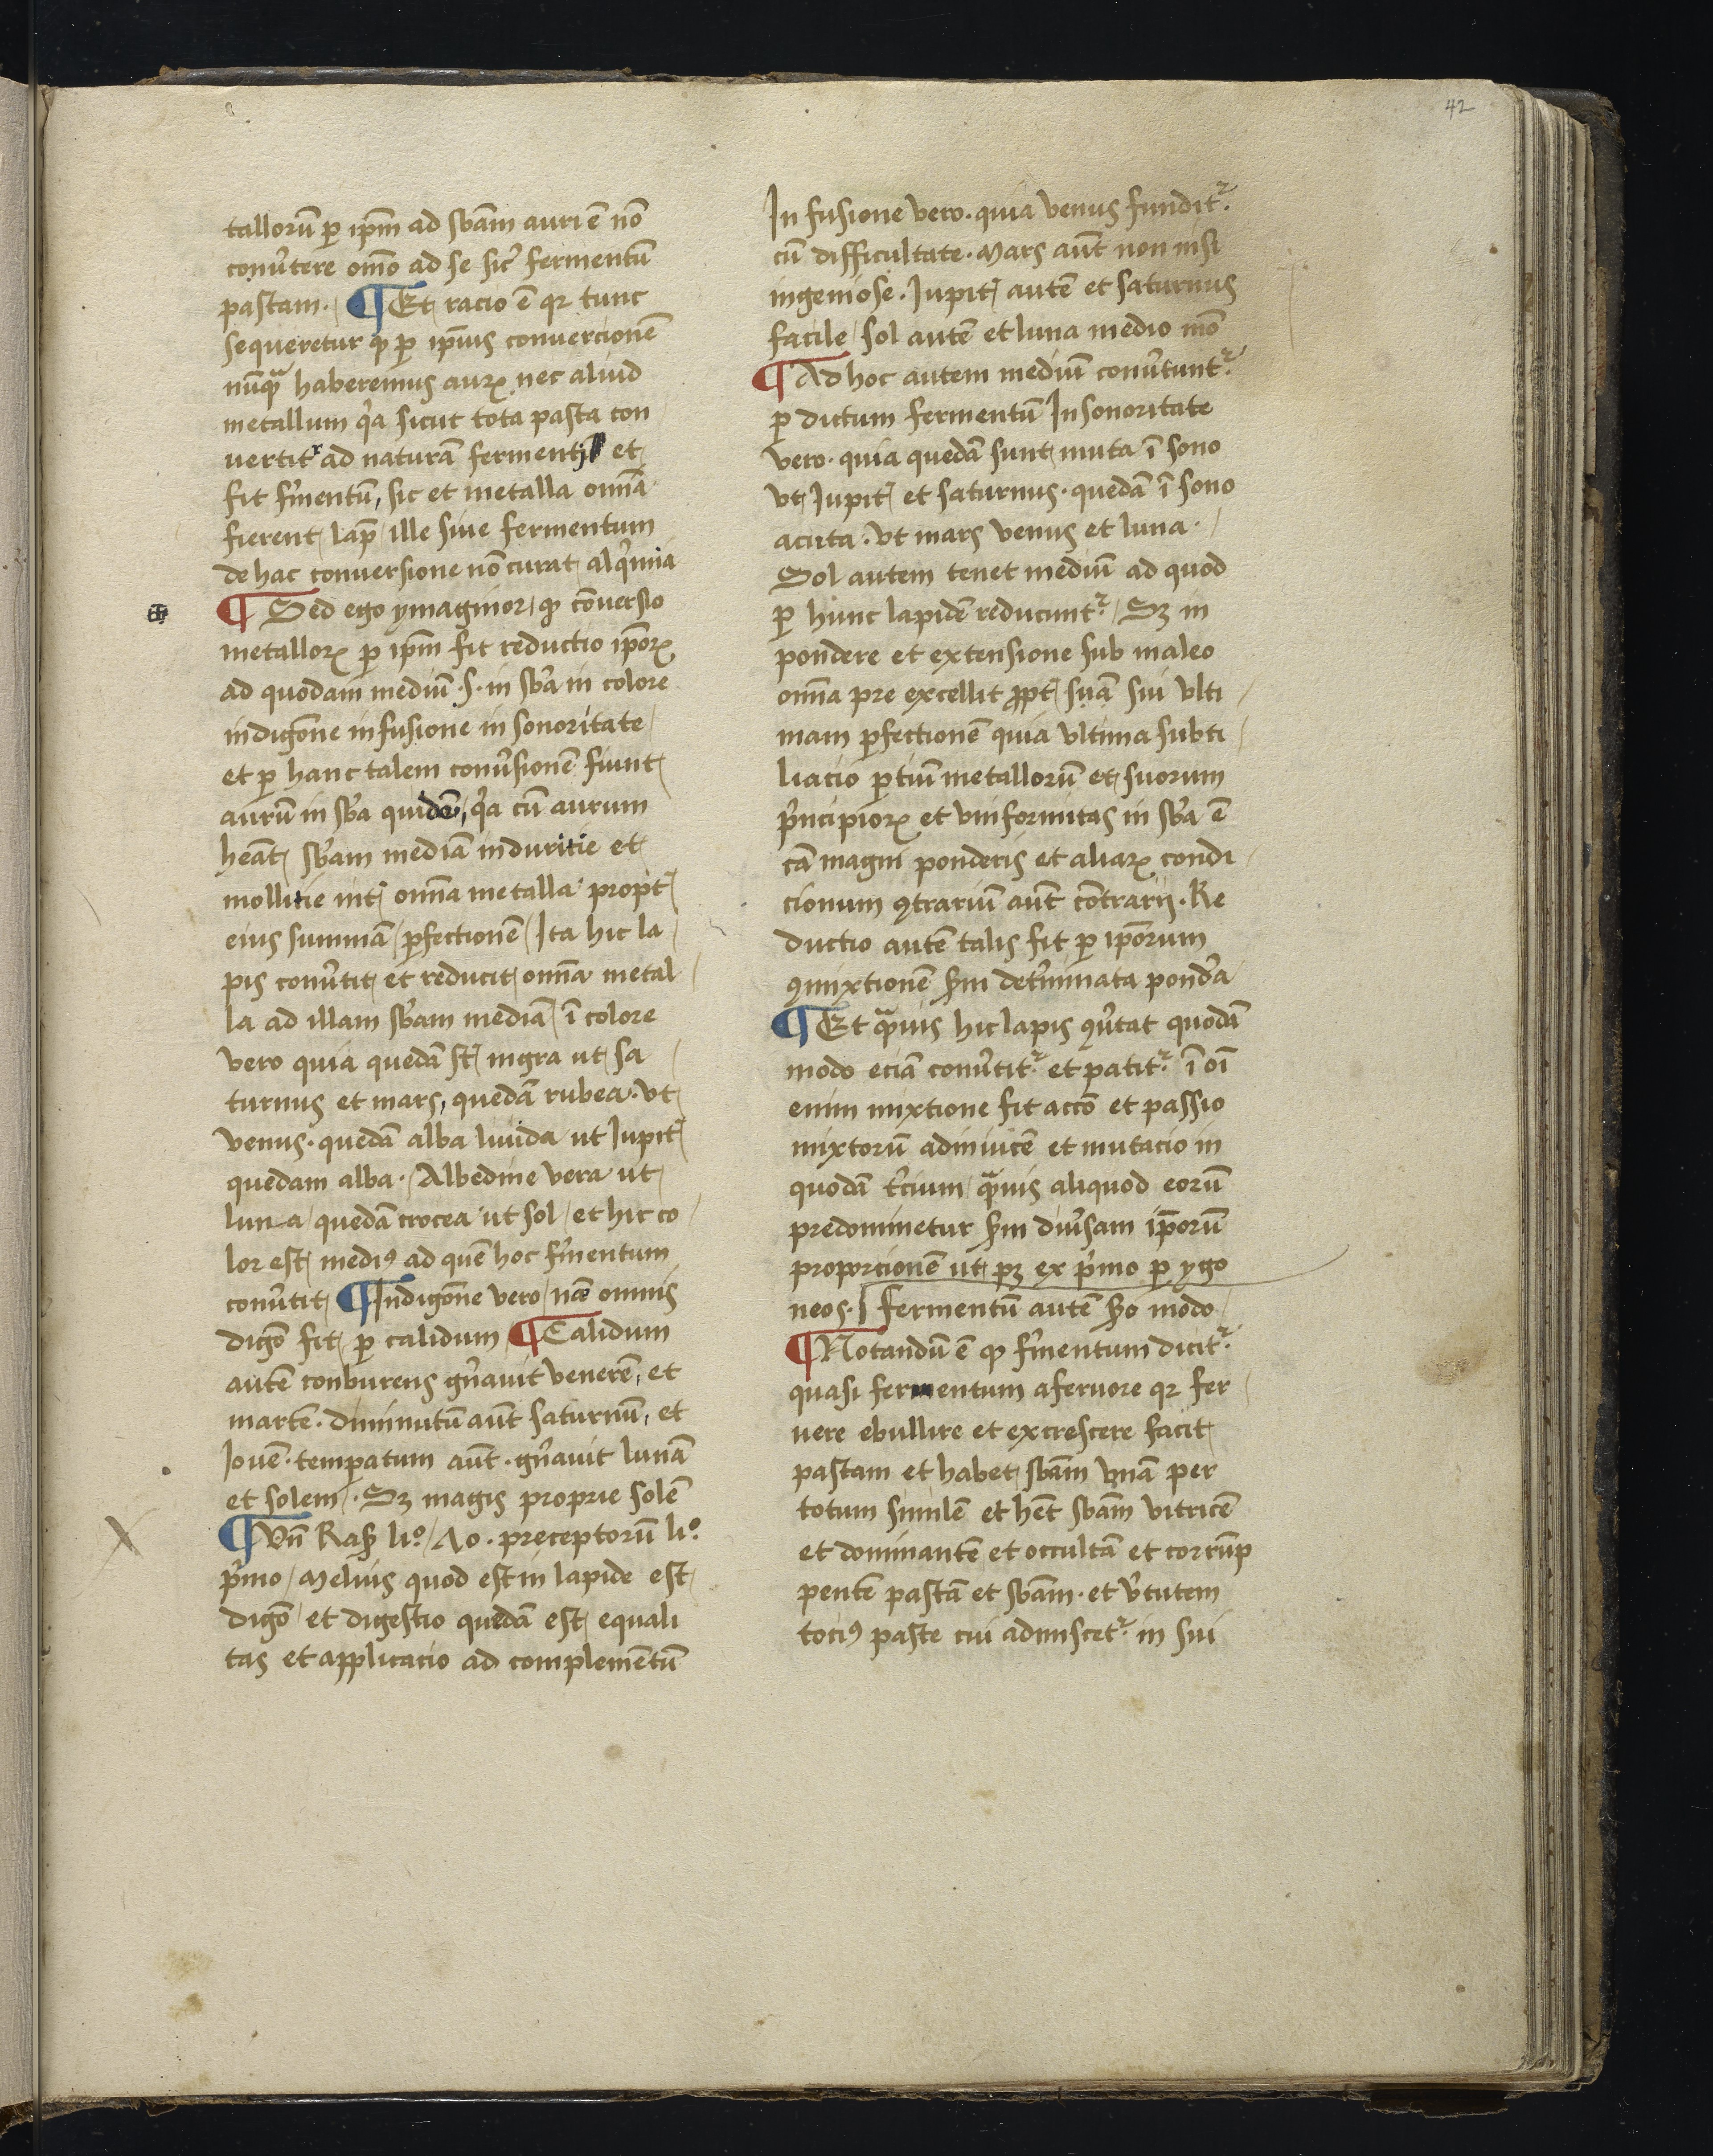 42
tallorū ꝑ ip̄m ad sb̄am auri ē nō
conūtere om̄o ad se sic̄ fermentū
pastam. ¶ Et racio ē qꝛ tunc
sequeretur ꝙ ꝑ ip̄ius conuercionē
nūqᷓ haberemus auꝝ nec aliud
metallum qͥa sicut tota pasta con
uertitᷣ ad naturā fermenti et
fit fm̄entū, sic et metalla om̄ia
fierent lap̄ ille siue fermentum
de hac conuersione nō curat alqͥmia
¶ Sed ego ymaginor ꝙ cōuersio
metalloꝝ ꝑ ip̄m fit reductio ip̄oꝝ
ad quodam mediū .s. in sb̄a in colore
in digōne in fusione in sonoritate
et ꝑ hanc talem conūsionē fiunt
aurū in sb̄a quidē, qͥa cū aurum
heāt sb̄am mediā in duritie et
mollitie int̄ om̄ia metalla propt̄
eius summā ꝑfectionē Ita hic la
pis conūtit et reducit om̄ia metal
la ad illam sb̄am mediā ī colore
vero quia quedā st̄ nigra ut sa
turnus et mars, quedā rubea. vt
venus. quedā alba liuida ut Jupit̄
quedam alba. Albedine vera ut
luna quedā crocea ut sol et hic co
lor est mediꝯ ad quē hoc fm̄entum
conūtit ¶ In digōne vero nā omnis
digō fit ꝑ calidum ¶ Calidum
autē conburens gn̄auit venerē, et
martē. diminutū aūt saturnū, et
Jouē. temꝑatum aūt. gn̄auit lunā
et solem. Sꝫ magis proprie solē
¶ Vn̄ Ras̄ li.º 70. preceptorū li.º
pͥmo Melius quod est in lapide est
digō et digestio quedā est equali
tas et applicacio ad complementū
In fusione vero. quia venus funditᷣ.
cū difficultate. mars aūt non nisi
ingeniose. Jupit̄ autē et saturnus
facile sol autē et luna medio mō
¶ Ad hoc autem mediū conūtuntᷣ.
ꝑ dictum fermentū In sonoritate
vero. quia quedā sunt muta ī sono
vt Jupit̄ et saturnus. quedā ī sono
acuta. vt mars venus et luna.
Sol autem tenet mediū ad quod
ꝑ hunc lapidē reducuntᷣ. Sꝫ in
pondere et extensione sub maleo
om̄ia pre excellit ꝓpt̄ suā sui vlti
mam ꝑfectionē quia vltima subti
liacio ꝑtiū metallorū et suorum
pͥncipioꝝ et vniformitas in sb̄a ē
cā magni ponderis et aliaꝝ condi
cionum ꝯtrariū aūt cōtrarij. Re
ductio autē talis fit ꝑ ip̄orum
ꝯmixtionē scd̄m det̄minata pond̄a
¶ Et qᷓuis hic lapis ꝯūtat quodā
modo eciā conūtitᷣ. et patitᷣ. ī oī
enim mixtione fit accō et passio
mixtorū adinuicē et mutacio in
quodā t̄cium qᷓuis aliquod eorū
predominetur scd̄m diūsam ip̄orū
proporcionē ut pꝫ ex pͥmo ꝑ ygo
neos. Fermentū autē scd̄o modo
¶ Notandū ē ꝙ fm̄entum dicitᷣ.
quasi fermentum a feruore qꝛ fer
uere ebullire et excrescere facit
pastam et habet sb̄am vnā per
totum similē et hēt sb̄am vitricē
et dominantē et occultā et corrūp
pentē pastā et sb̄am. et v̄tutem
tociꝯ paste cui admiscetᷣ. in sui